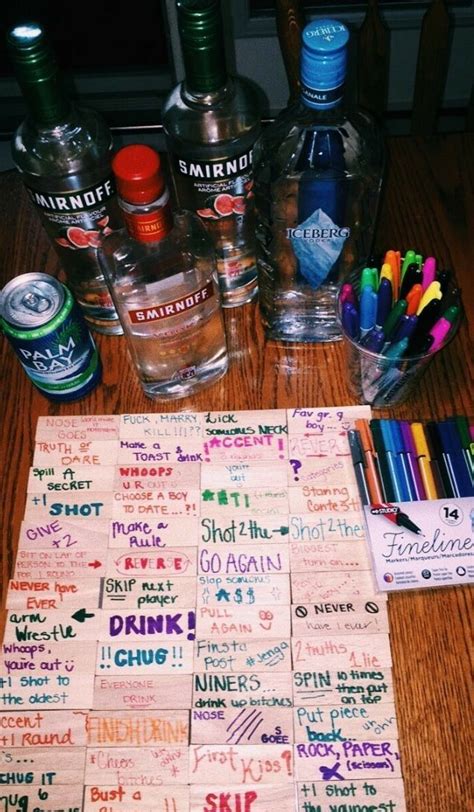 SMIRNOFF
SMIRNOFF
ICEBERG
VODKA
SMIRNOFF
PALM
BAY
NOSE
GOES
FUCK, MARRY
KILL!!!??
Lick
someones NECK
Fav gr. 9
boy
TRUTH OR
DARE
Make a
TOAST & drink
ACCENT!
NEVER
Spill A
SECRET
WHOOPS
U R OUT
you're
out
categories
+1 SHOT
CHOOSE A BOY
TO DATE...?!
Staring
Contest
GIVE
+2
Make a
RULE
Shot 2 the
Shot 2 the
SIT ON LAP OF
PERSON TO THE
FOR 1 ROUND
REVERSE
GO AGAIN
BIGGEST
NEVER Have
EVER!
SKIP next
player
Slap someone's
A$$
arm
Wrestle
DRINK!
PULL
AGAIN
NEVER
have I ever!
Whoops,
you're out
!!CHUG!!
Finsta
Post
#Jenga
2 truths
1 lie
+1 Shot to
the oldest
EVERYONE
DRINK
NINERS...
drink up bitches
SPIN 10 times
then put
on top
accent
+1 Round
FINISH DRINK
NOSE
GOES
Put piece
back
CHUG IT
Cheers
bitches
First Kiss?
ROCK, PAPER,
(scissors)
Bust a
SKIP
+1 Shot to
the youngest
STUDIO
14
Fineline
Markers/Marqueurs/Marcadores